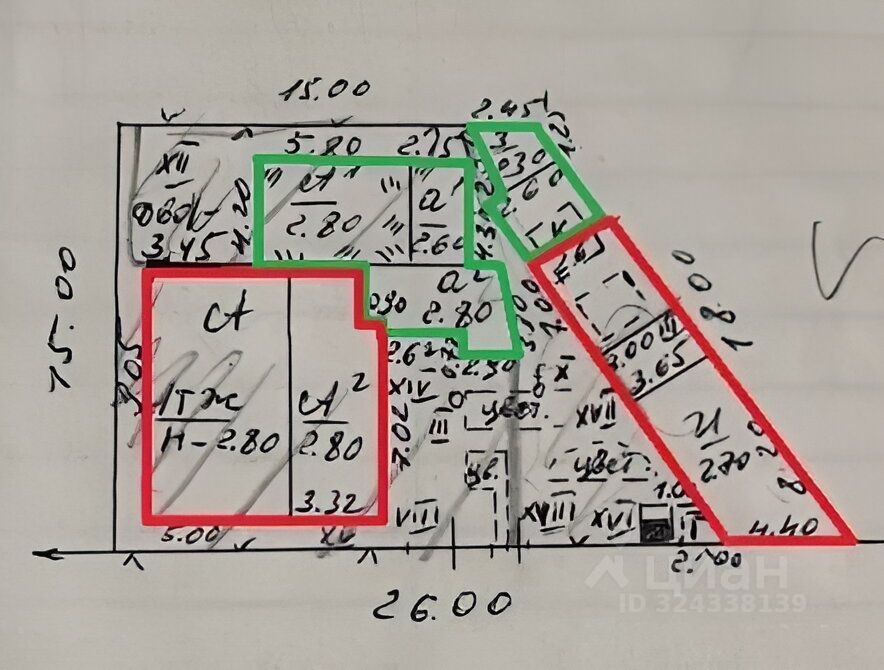 15.00
2.45
5.80
2.75
XII
А¹
2.80
а¹
2.60
3.45
4.20
3
а²
2.80
0.90
15.00
А
1тж
Н-2.80
А²
2.80
3.32
9.05
7.02
XIV
III
2.30
X
цвет.
XVII
цв.
цвет.
VIII
XVIII
XVI
II
1.0
18.00
7.00
III
3.65
И
2.70
8.20
4.40
5.00
XV
2.00
26.00
циан
ID 324338139